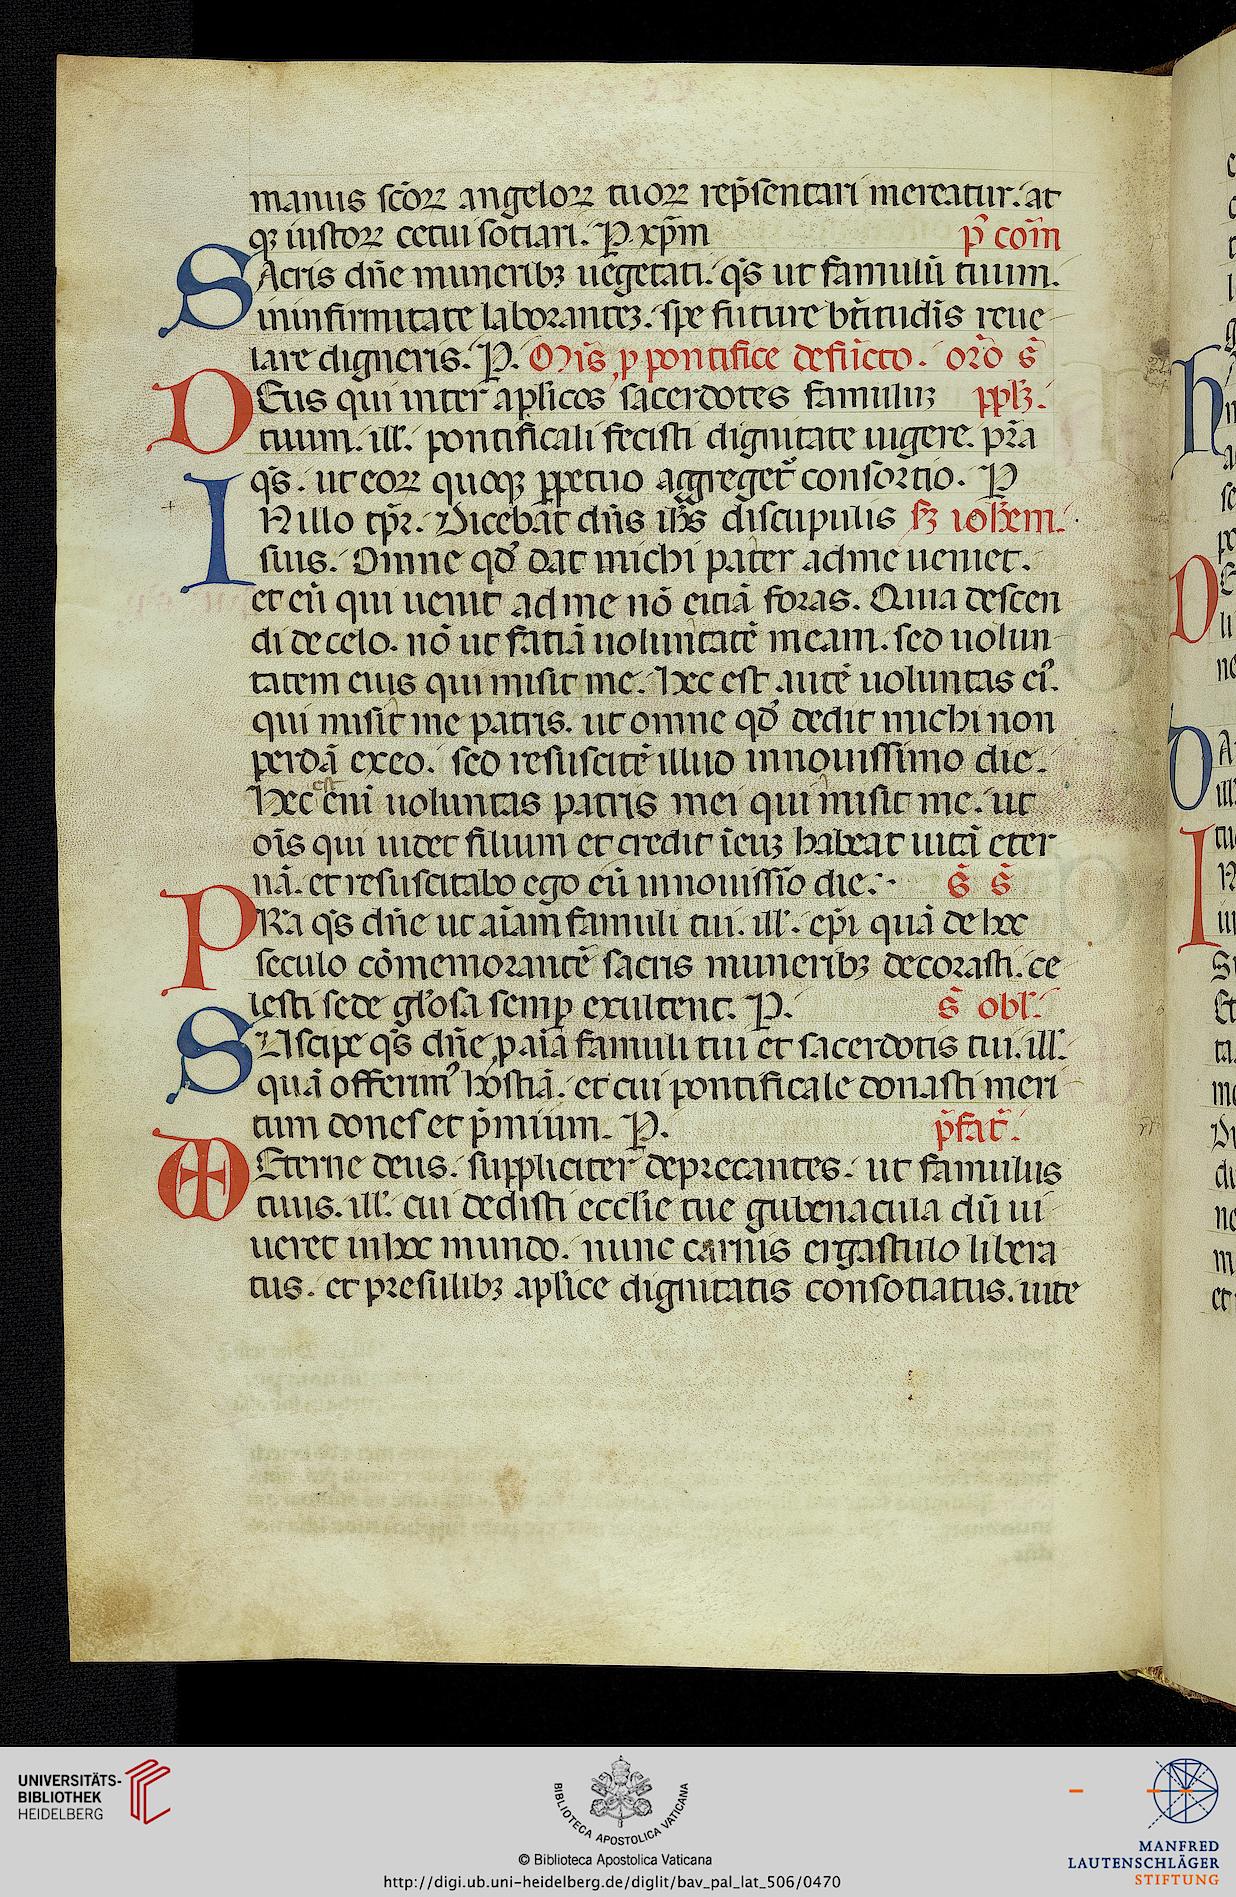 manus sc̄oꝝ angeloꝝ tuoꝝ rep̄sentari mereatur. at
qꝫ iustoꝝ cetui sotiari. P. xp̄m p̄ com̄
SAcris dn̄e muneribꝫ uegetati. qs̄ ut famulū tuum.
ininfirmitate laboranteꝫ. spe future bt̄itudīs reue
lare digneris. P. Mis̄ ꝓ pontifice defūcto. or̄o s̄
DEus qui inter aplicos sacerdotes famuluꝫ pplꝫ.
tuum. ill̓. pontificali fecisti dignitate uigere. pr̄a
qs̄. ut eoꝝ quoqꝫ ꝑpetuo aggreget̄ consortio. P
INillo tp̄r. Dicebāt dn̄s ih̄s discupulis sꝫ ioh̄em.
suis. Omne qd̓ dat michi pater adme ueniet.
et eū qui uenit ad me nō eitiā foras. Quia descen
di de celo. nō ut fatiā uoluntatē meam. sed uolun
tatem eius qui misit me. Hec est autē uoluntas ei᾽.
qui misit me patris. ut omne qd̓ dedit michi non
perdā exeo. sed resuscitē illud innouissimo die.
Hec est eni̅ uoluntas patris mei qui misit me. ut
oīs qui uidet filium et credit īeuꝫ habeat uitā eter
nā. et resuscitabo ego eū innouissīo die. s̄ s̄
PRa qs̄ dn̄e ut aīam famuli tui. ill̓. ep̄i quā de hoc
seculo cōmemorantē sacris muneribꝫ decorasti. ce
lesti sede gl̓osa semꝑ exultent. P. s̄ obl̓.
SUscipe qs̄ dn̄e ꝓ aīa famuli tui et sacerdotis tui. ill̓.
quā offerim᾽ hostiā. et cui pontificale donasti meri
tum dones et p̄mium. P. p̄fat̄.
VD Eterne deus. suppliciter deprecantes. ut famulus
tuus. ill̓. cui dedisti eccl̓ie tue gubernacula dū ui
ueret inhoc mundo. nunc carnis ergastulo libera
tus. et presulibꝫ apl̓ice dignitatis consotiatus. uite
UNIVERSITÄTS-
BIBLIOTHEK
HEIDELBERG
BIBLIOTECA APOSTOLICA VATICANA
© Biblioteca Apostolica Vaticana
http://digi.ub.uni-heidelberg.de/diglit/bav_pal_lat_506/0470
MANFRED
LAUTENSCHLÄGER
STIFTUNG